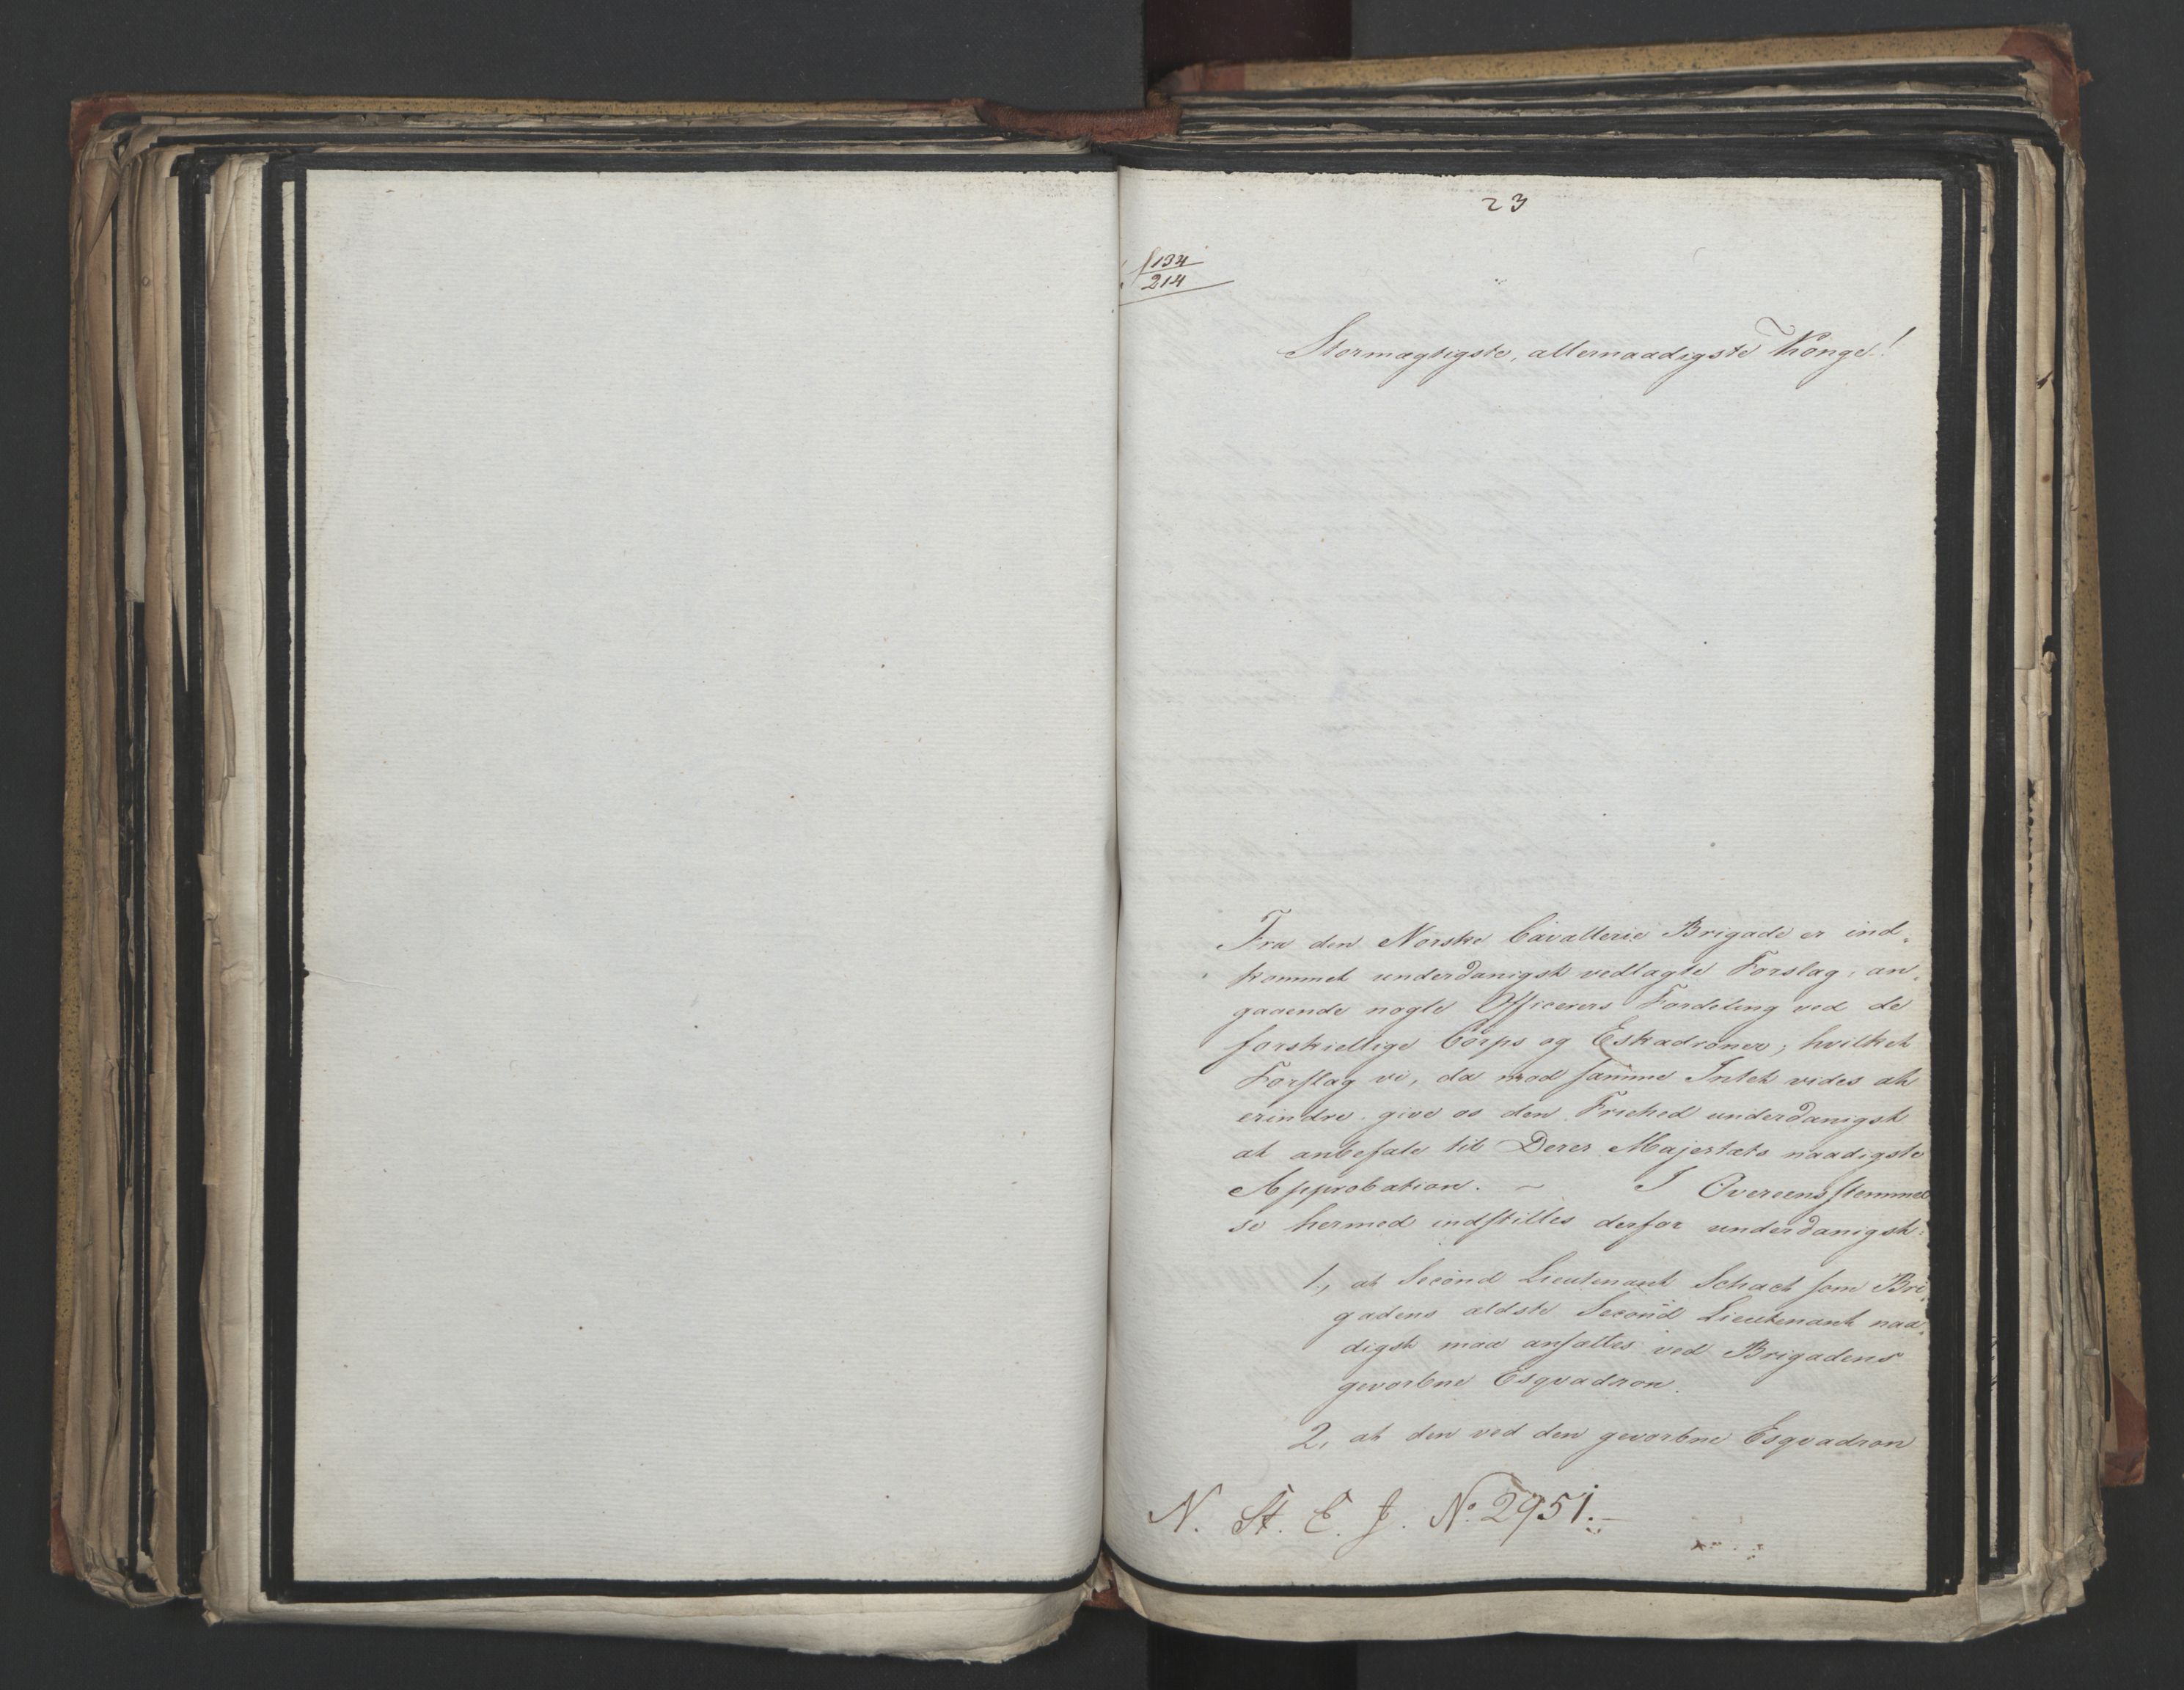 23
134
214
Stormægtigste, allernaadigste Konge!
Fra den Norske Cavallerie Brigade er ind-
kommet underdanigst vedlagte Forslag, an-
gaaende nogle Officerers Fordeling ved de
forskiellige Corps og Eskadroner; hvilket
Forslag vi, da mod samme Intet vides at
erindre, give os den Friehed underdanigst
at anbefale til Deres Majestæts naadigste
Approbation. – I Overeensstemmel
se hermed indstilles derfor underdanigst:
1, at Second Lieutenant Schact som Bri-
gadens ældste Second Lieutenant naa-
digst maa ansættes ved Brigadens
gevorbne Esqvadron.
2, at den ved den gevorbne Esqvadron
N. St. E. J. No. 2951.